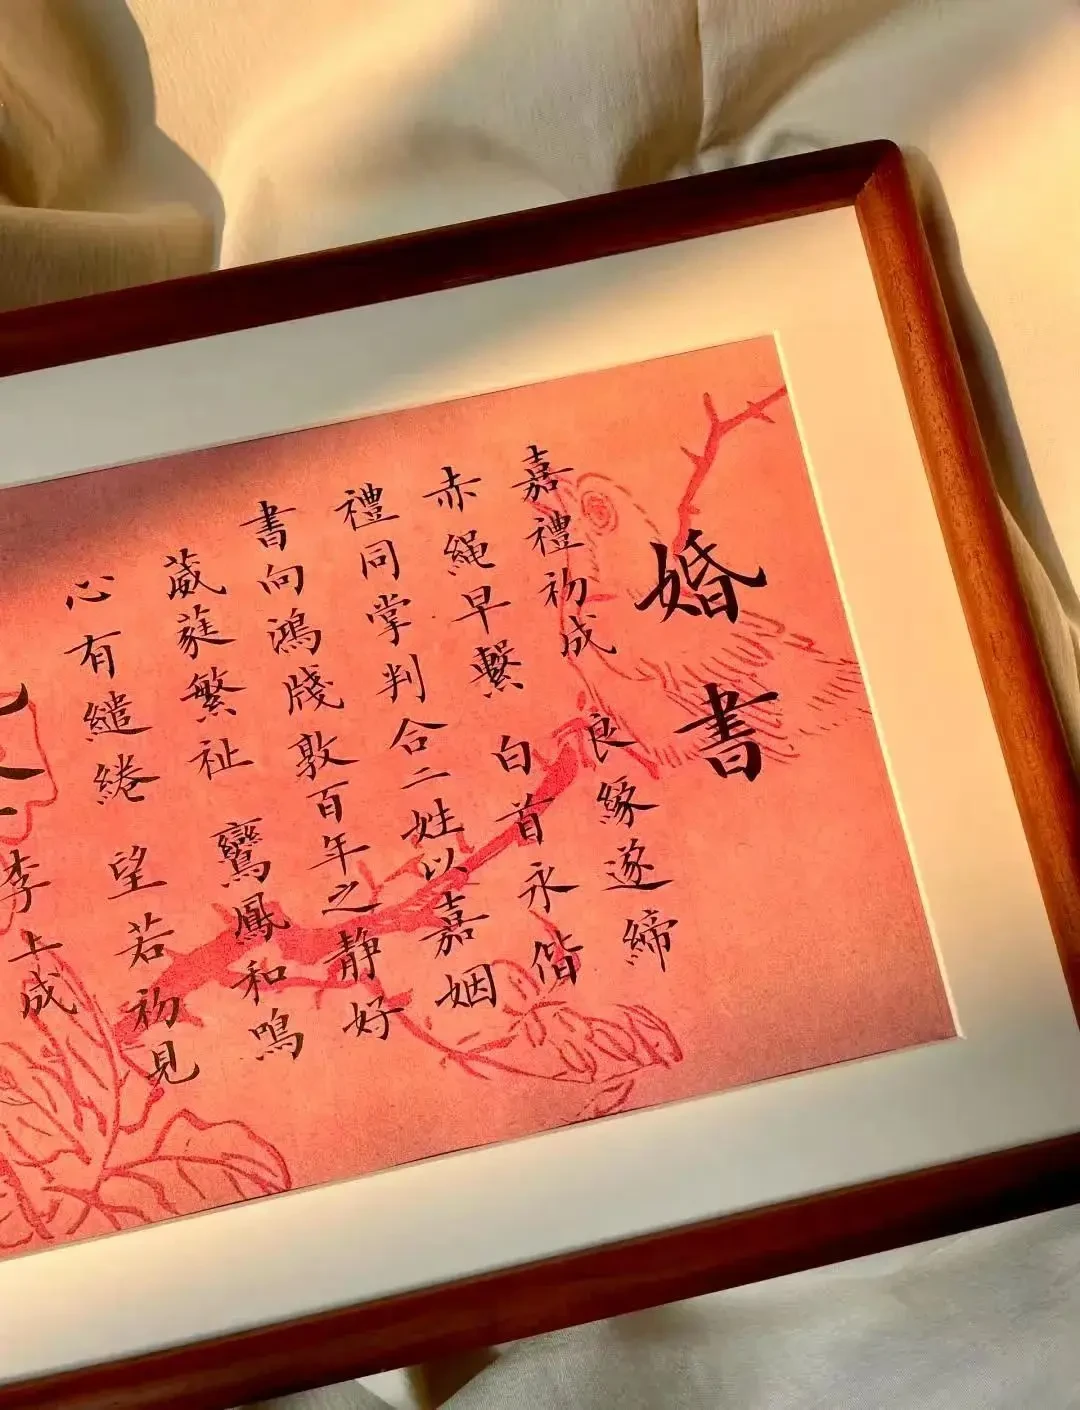 婚書
嘉禮初成 良緣遂締
赤繩早繫 白首永偕
禮同掌判合二姓以嘉姻
書向鴻牋敦百年之靜好
葳蕤繁祉 鸞鳳和鳴
心有繾綣 望若初見
李上成